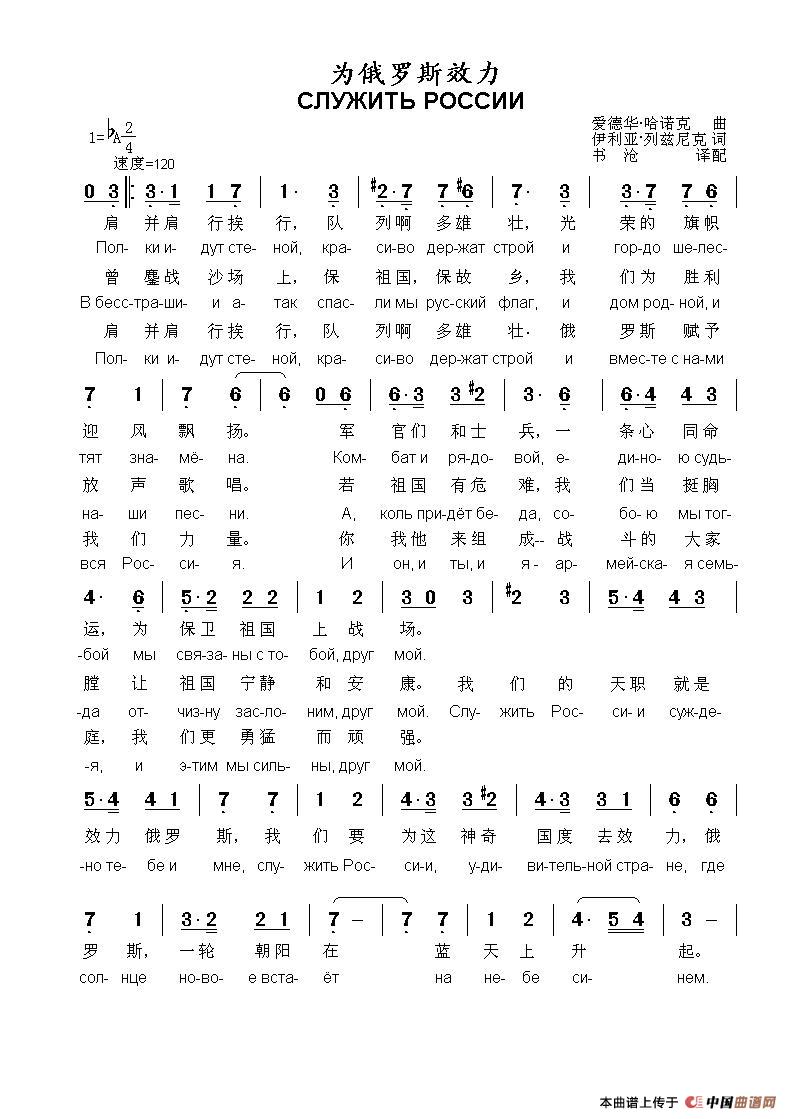 为俄罗斯效力
СЛУЖИТЬ РОССИИ
1=♭A 2/4
速度=120
爱德华·哈诺克 曲
伊利亚·列兹尼克 词
书 沧 译配
0 3 ‖: 3·1 1 7 | 1· 3 | #2·7 7 #6 | 7· 3 | 3·7 7 6 |
肩 并肩 行挨 行，队 列啊 多雄 壮，光 荣的 旗帜
Пол- ки и- дут сте- ной, кра- си-во дер-жат строй и гор-до ше-лес-
曾 鏖战 沙场 上，保 祖国，保故 乡，我 们为 胜利
В бесс-тра-ши- и а- так спас- ли мы рус-ский флаг, и дом род-ной, и
肩 并肩 行挨 行，队 列啊 多雄 壮. 俄 罗斯 赋予
Пол- ки и- дут сте- ной, кра- си-во дер-жат строй и вмес-те с нами
7 1 | 7 6 | 6 0 6 | 6·3 3 #2 | 3· 6 | 6·4 4 3 |
迎 风 飘 扬。 军 官们 和士 兵，一 条心 同命
тят зна- мё- на. Ком- бат и ря-до- вой, е- ди-но- ю судь-
放 声 歌 唱。 若 祖国 有危 难，我 们当 挺胸
на- ши пес- ни. А, коль при-дёт бе- да, со- бо- ю мы тог-
我 们 力 量。 你 我他 来组 成-- 战 斗的 大家
вся Рос- си- я. И он, и ты, и я - ар- мей-ска- я семь-
4· 6 | 5·2 2 2 | 1 2 | 3 0 3 | #2 3 | 5·2 4 3 |
运，为 保卫 祖国 上 战 场。
-бой мы свя-за- ны с то- бой, друг мой.
膛 让 祖国 宁静 和 安 康。 我 们 的 天职 就是
-да от- чиз-ну зас-ло- ним, друг мой. Слу- жить Рос- си- и суж-де-
庭，我 们更 勇猛 而 顽 强。
-я, и э-тим мы силь- ны, друг мой.
5·4 4 1 | 7 7 | 1 2 | 4·3 3 #2 | 4·3 3 1 | 6 6 |
效力 俄罗 斯，我 们 要 为这 神奇 国度 去效 力，俄
-но те- бе и мне, слу- жить Рос- си-и, у-ди- ви-тель-ной стра- не, где
7 1 | 3·2 2 1 | 7 – | 7 7 | 1 2 | 4· 5 4 | 3 – |
罗 斯，一轮 朝阳 在 蓝 天 上 升 起。
сол- нце но-во- е вста- ёт на не- бе си- нем.
本曲谱上传于 中国曲谱网